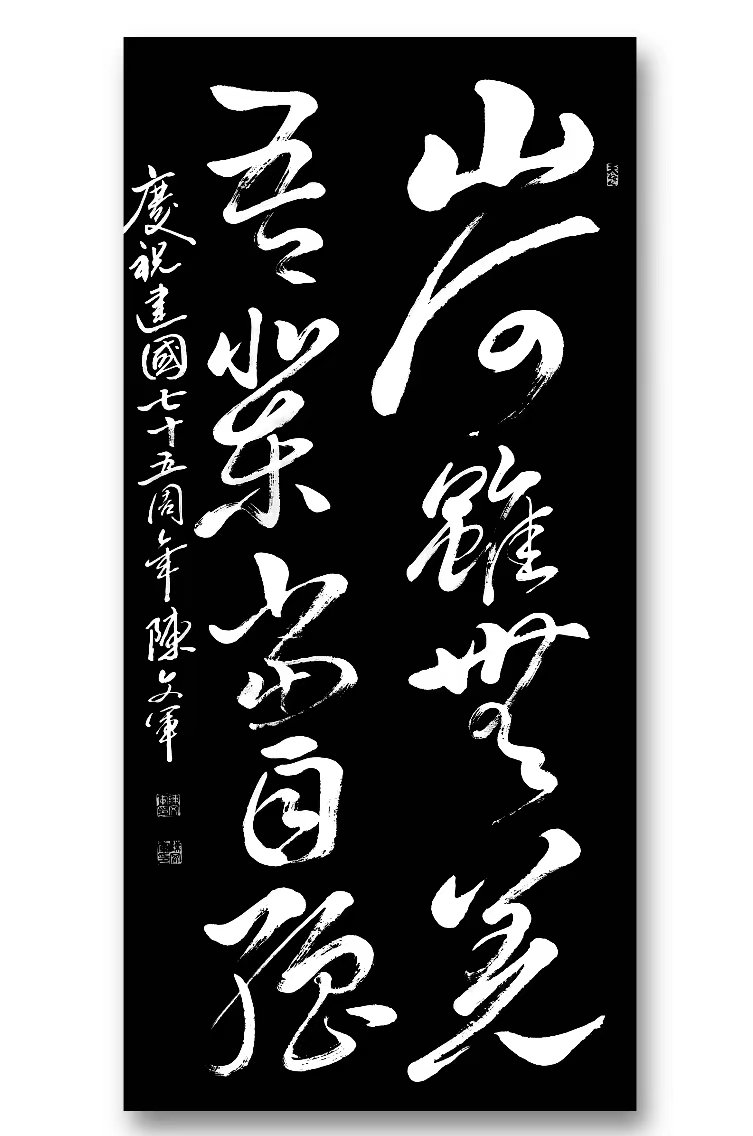 山河雖無恙
吾輩當自強
慶祝建國七十五周年 陳文軍